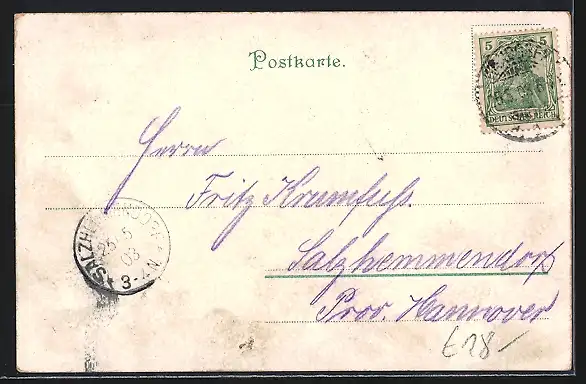 Postkarte.
5 5
DEUTSCHES REICH
Herrn
Fritz Krumfuss.
Salzhemmendorf
Prov. Hannover
SALZHEMMENDORF
25 5
03
3-4N.
€28-